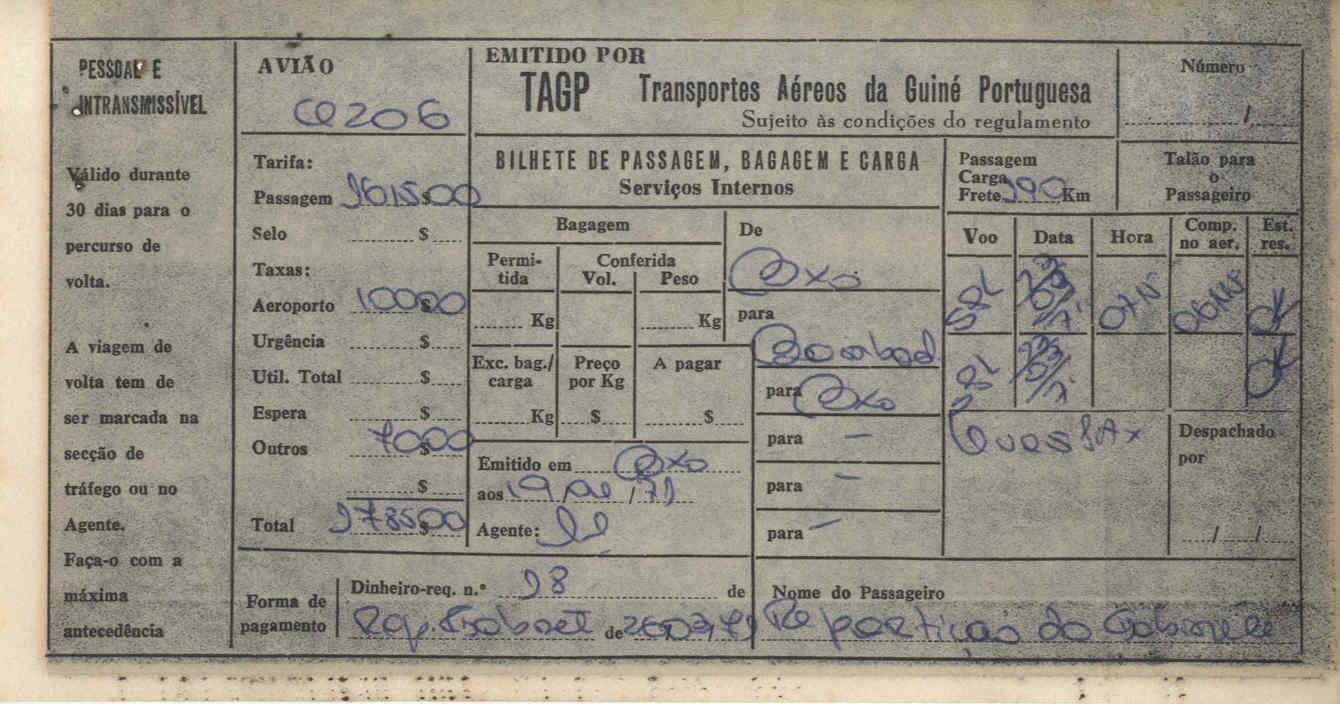 PESSOAL E
INTRANSMISSÍVEL
Válido durante
30 dias para o
percurso de
volta.
A viagem de
volta tem de
ser marcada na
secção de
tráfego ou no
Agente.
Faça-o com a
máxima
antecedência
AVIÃO
Tarifa:
Passagem $
Selo $
Taxas:
Aeroporto 100$00
Urgência $
Util. Total $
Espera $
Outros 70$00
$
Total $
EMITIDO POR
TAGP Transportes Aéreos da Guiné Portuguesa
Sujeito às condições do regulamento
Número
/
BILHETE DE PASSAGEM, BAGAGEM E CARGA
Serviços Internos
Passagem
Carga
Frete Km
Talão para
o
Passageiro
Bagagem
Permi-
tida
Conferida
Vol. Peso
Kg Kg
Exc. bag./
carga
Preço
por Kg
A pagar
Kg $ $
Emitido em Oxo
aos 19 / /71
Agente:
De
Oxo
para
para Oxo
para —
para —
para —
Voo Data Hora Comp.
no aer.
Est.
res.
OK
OK
Despachado
por
/ /
Forma de
pagamento
Dinheiro-req. n.º 98 de
Rep. Gabinet de
Nome do Passageiro
Repartição do Gabinete